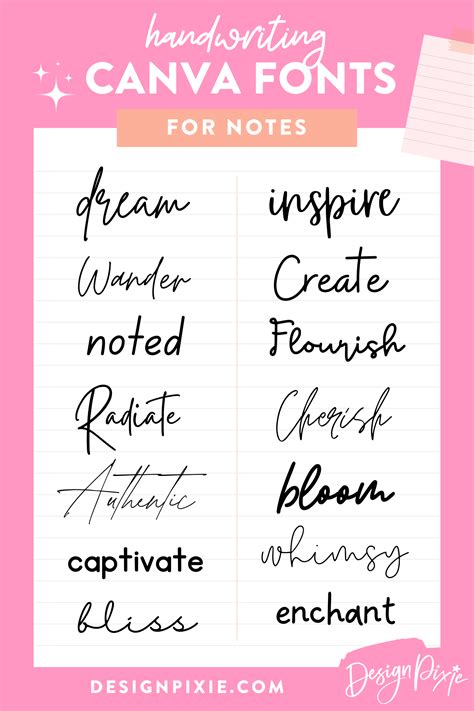 handwriting
CANVA FONTS
FOR NOTES
dream
inspire
Wander
Create
noted
Flourish
Radiate
Cherish
Authentic
bloom
captivate
whimsy
bliss
enchant
DESIGNPIXIE.COM
DesignPixie